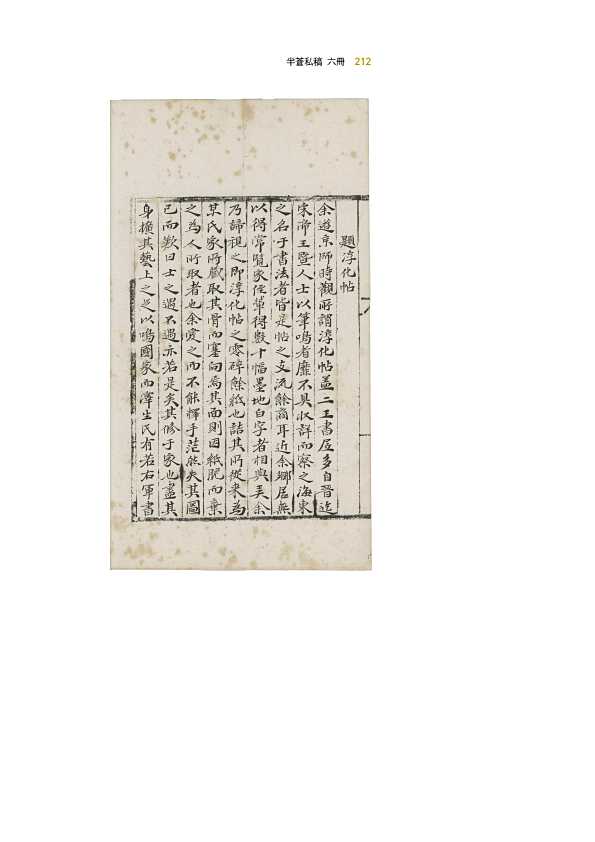 半蒼私稿 六冊 212
題淳化帖
余遊京師時觀所謂淳化帖蓋二王書居多自晉迄
宋帝王暨人士以筆鳴者靡不具収詳而察之海東
之名于書法者皆是帖之支流餘裔耳近余鄉居無
以得常覧家侄輩得數十幅墨地白字者相與弄余
乃諦視之即淳化帖之零碎餘紙也詰其所從来為
某氏家所藏取其骨而塞向焉其面則因紙肥而棄
之為人所取者也余愛之而不能釋手茫然失其圖
已而歎曰士之遇不遇亦若是矣其修于家也盡其
身擴其藝上之足以鳴國家而澤生民有若右軍書